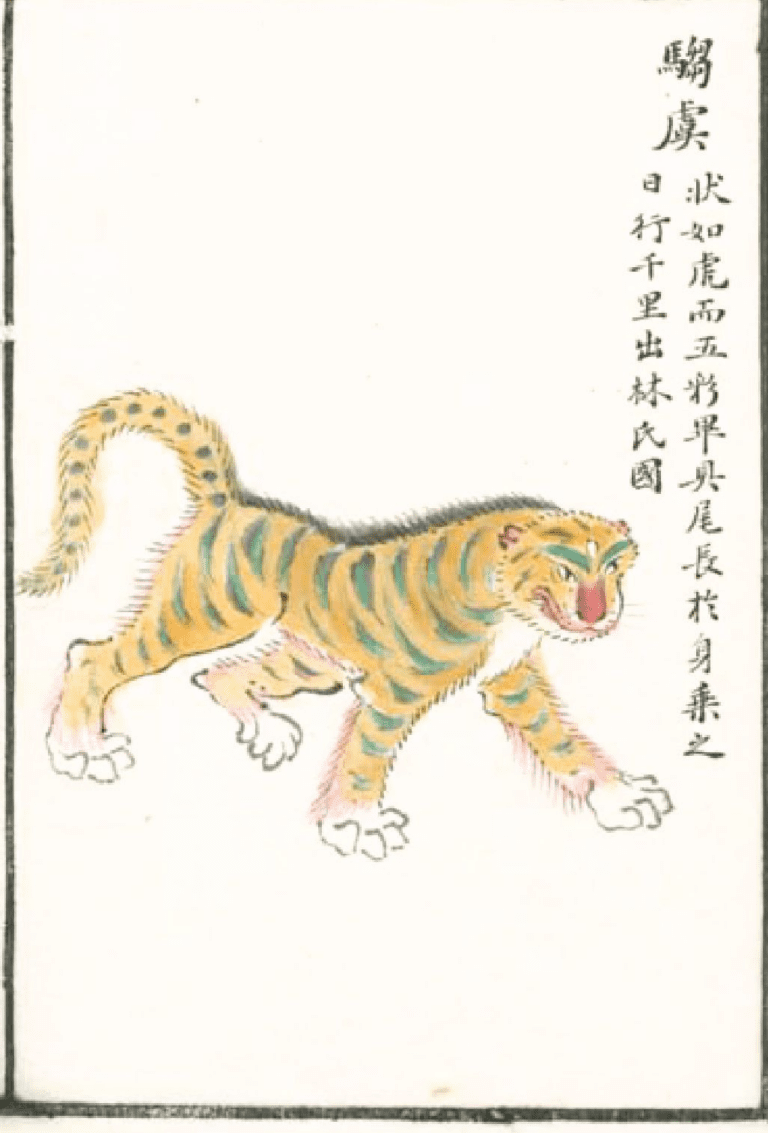 騶虞
狀如虎而五彩畢具尾長於身乗之
日行千里出林氏國